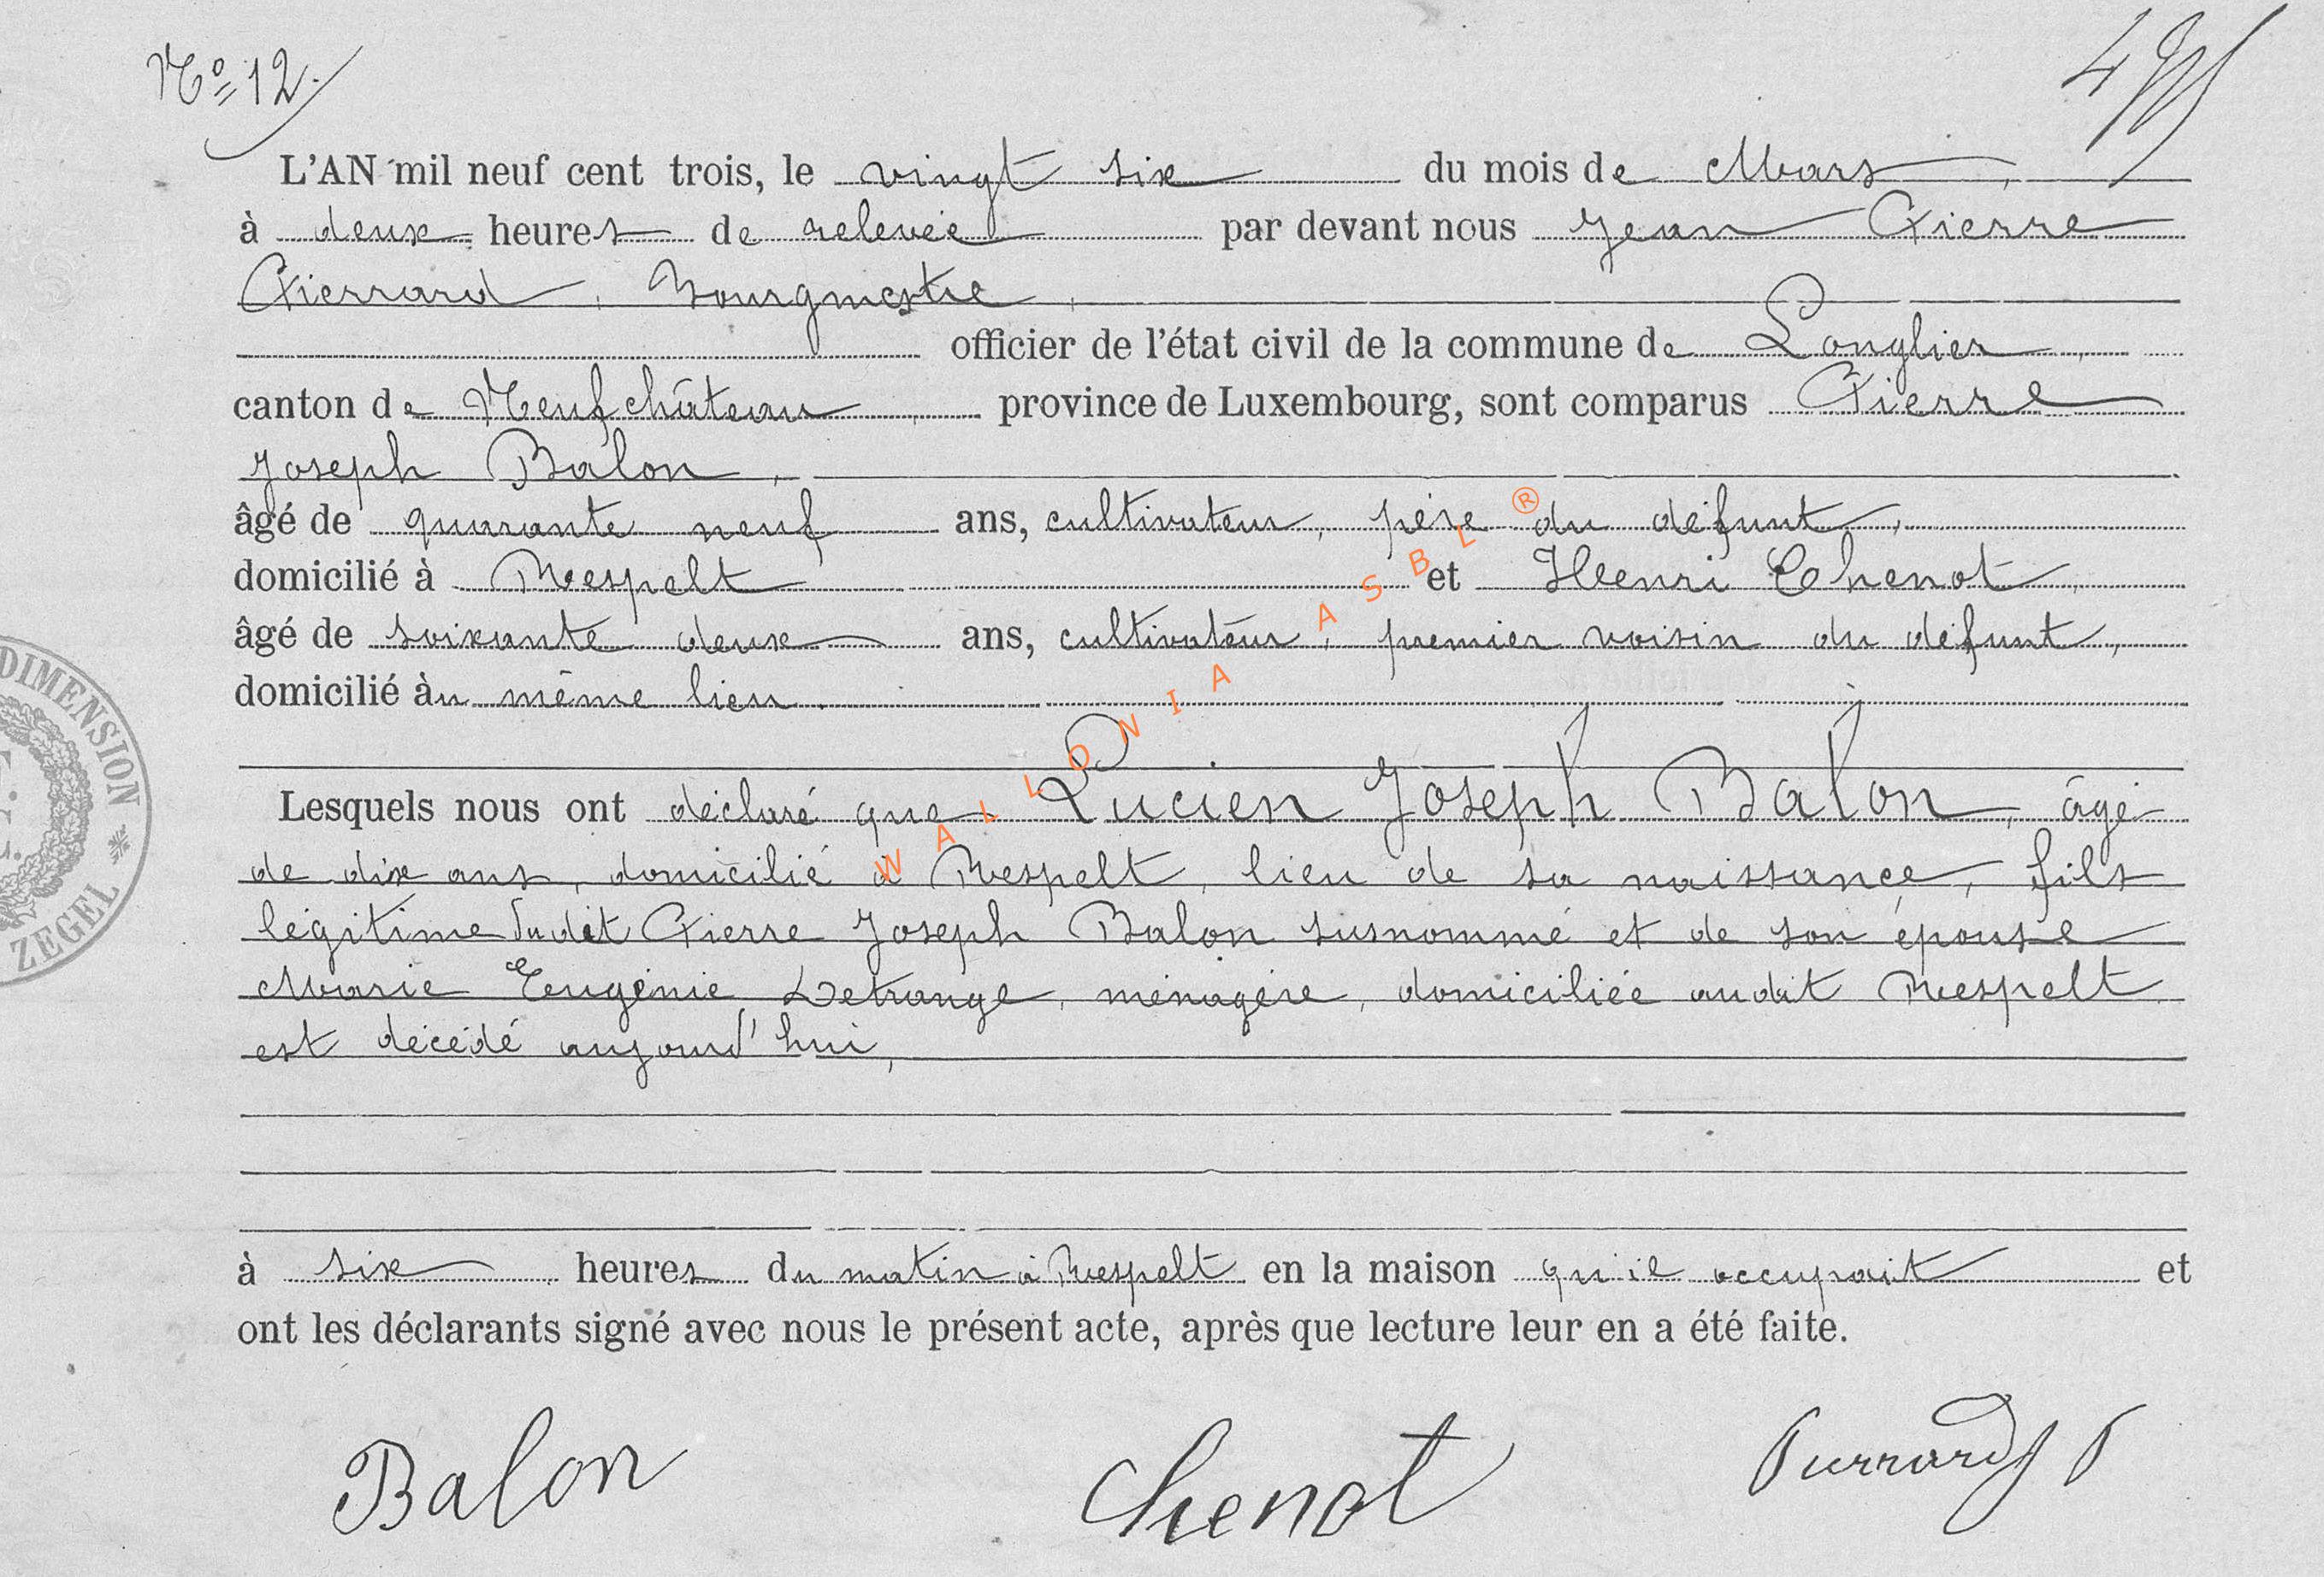 No 12.
L'AN mil neuf cent trois, le vingt six du mois de Mars,
à deux heures de relevée par devant nous Jean Pierre
Pierrard, Bourgmestre,
officier de l'état civil de la commune de Longlier,
canton de Neufchâteau, province de Luxembourg, sont comparus Pierre
Joseph Balon,
âgé de quarante neuf ans, cultivateur, père du défunt,
domicilié à Respelt et Henri Chenot,
âgé de soixante deux ans, cultivateur, premier voisin du défunt,
domicilié àu même lieu.
Lesquels nous ont déclaré que Lucien Joseph Balon, âgé
de dix ans, domicilié à Respelt, lieu de sa naissance, fils
légitime dudit Pierre Joseph Balon susnommé et de son épouse
Marie Eugénie Detrange, ménagère, domiciliée audit Respelt
est décédé aujourd'hui,
à six heures du matin à Respelt en la maison qu'il occupait et
ont les déclarants signé avec nous le présent acte, après que lecture leur en a été faite.
Balon Chenot Pierrard
DIMENSION
ZEGEL
WALLONIA ASBL ®